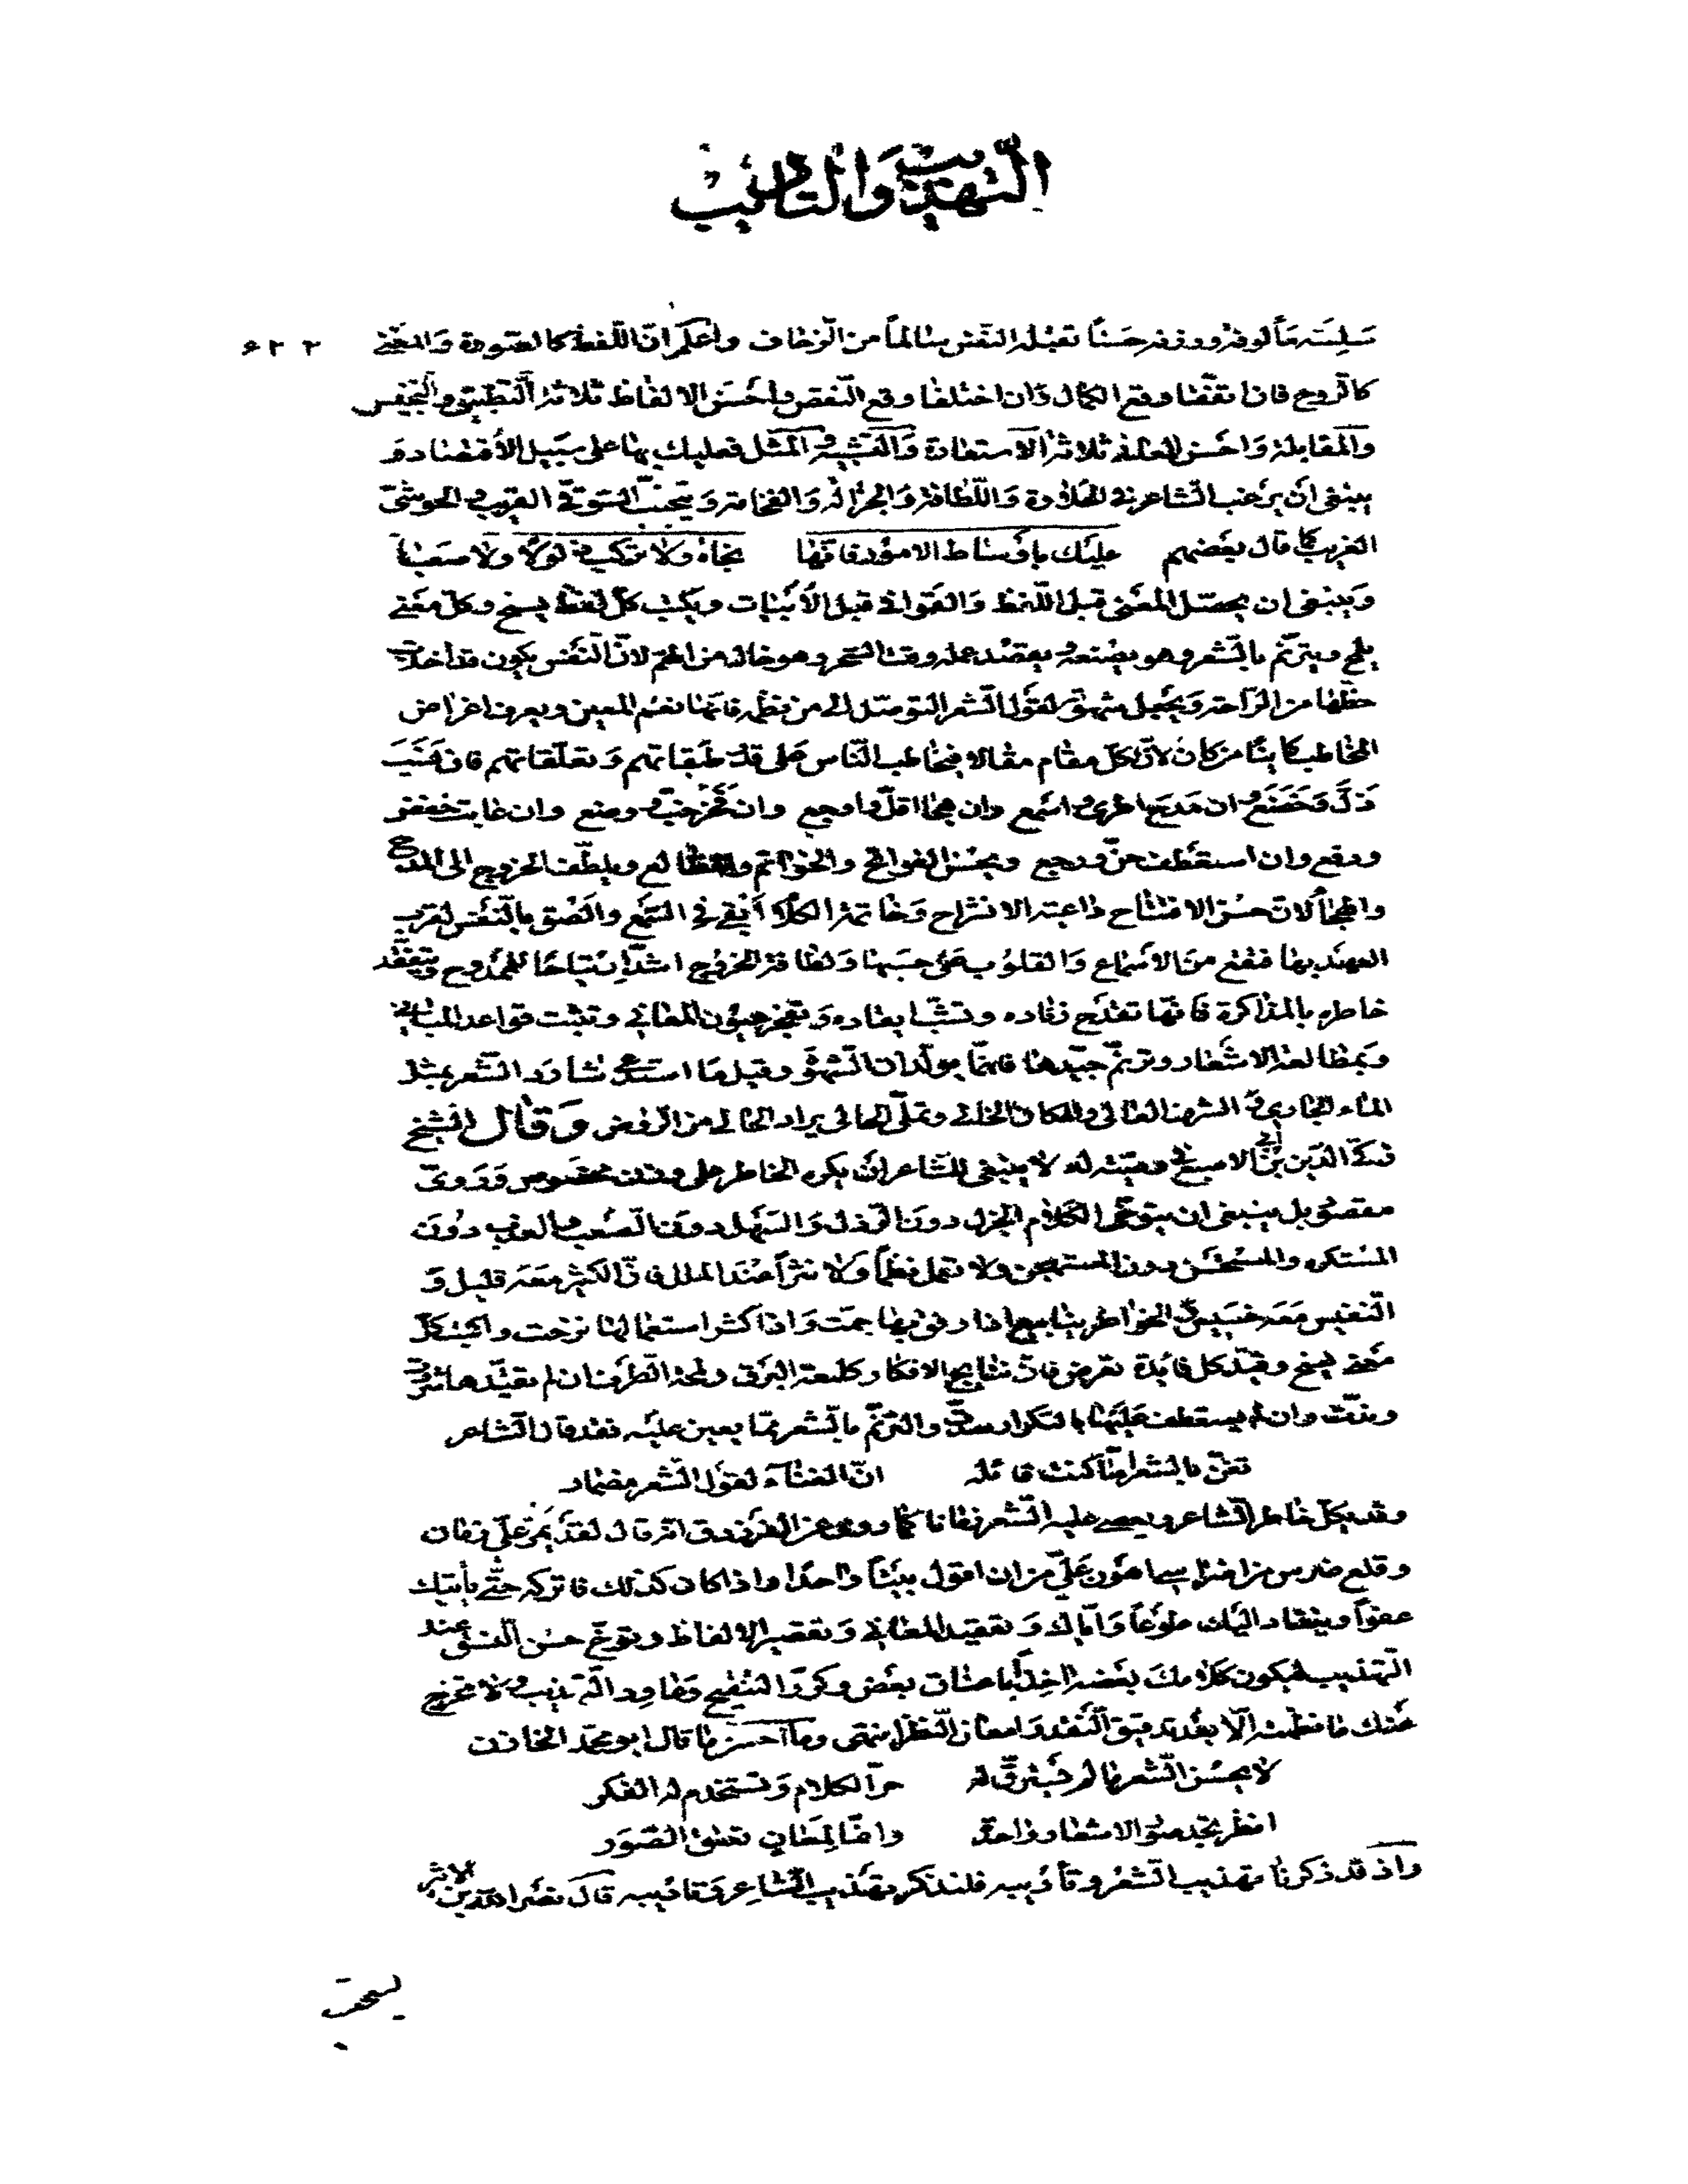 التهذيب والتأديب
سليمة مألوفة ووزنه حسنا تقبله النفس سالما من الزحاف واعلم ان اللفظ كالصورة والمعنى
كالروح فان اتفقا وقع الكمال وان اختلفا وقع النقص واحسن الالفاظ ثلاثة التطبيق والتجنيس
والمقابلة واحسن المعاني ثلاثة الاستعارة والتشبيه والمثل فعليك بها على سبيل الاقتضاء و
ينبغي ان يرغب الشاعر في الحلاوة واللطافة والجزالة والفخامة ويتجنب السوقي القريب والحوشي
الغريب كما قال بعضهم عليك باوساط الامور فانها نجاة ولا تركب ذلولا ولا صعبا
وينبغي ان يحصل المعنى قبل اللفظ والقوافي قبل الأبيات ويكتب كل لفظ يسنح وكل معنى
يلمح ويترنم بالشعر وهو يصنعه ويعتمد عمله وقت السحر وهو خال من الهم لان النفس يكون قد اخذت
حظها من الراحة ويجعل شهوته لقول الشعر التوصل الى من نظمه فانها نعم المعين ويعرف اغراض
المخاطب كائنا من كان لان لكل مقام مقالا فيخاطب الناس على قدر طبقاتهم وتعلقاتهم فان نسب
ذل وخضع وان مدح اطرى واسمع وان هجا اقل واوجع وان فخر خب ووضع وان عاتب خفض
ورفع وان استعطف حن ورجع ويحسن الفواتح والخواتم والمطالع ويلطف الخروج الى المدح
والهجاء لان حسن الافتتاح داعية الانشراح وخاتمة الكلام أبقى في السمع والصق بالنفس لقرب
العهد بها فتقع من الاسماع والقلوب على حسبها ولطافة الخروج اشد ارتياحا للممدوح ويتفقد
خاطره بالمذاكرة فانها تقدح زناده وتفجر عيون المعاني وتثبت قواعد المباني
وبمطالعة الاشعار وترنم جيدها فانها مولدات الشهوة وقيل ما استدعى شارد الشعر بمثل
الماء الجاري والشرف العالي والمكان الخالي وتملى الحالي يراد الحالي من الروض وقال الشيخ
زكي الدين بن أبي الاصبع في وصيته له لا ينبغي للشاعر ان يكره الخاطر على وزن مخصوص وروى
مقصود بل ينبغي ان يتوخى الكلام الجزل دون الرذل والسهل دون الصعب والعذب دون
المستكره والمستحسن دون المستهجن ولا تعمل نظما ولا نثرا عند الملل فان الكثير معه قليل و
النفيس معه خسيس والخواطر ينابيع اذا رفق بها جمت واذا كثر استعمالها نزحت واكتب كل
معنى يسنح وقيد كل فائدة تعرض فان نتايج الافكار كلمعة البرق ولمحة الطرف ان لم تقيدها شردت
وندت وان لم يستعطف عليها بالتكرار صدت والترنم بالشعر مما يعين عليه فقد قال الشاعر
تغن بالشعر اما كنت قائله ان الغناء لقول الشعر مضمار
وقد يكل خاطر الشاعر ويعصى عليه الشعر زمانا كما روى عن الفرزدق انه قال لقد يمر علي زمان
وقلع ضرس من اضراسي اهون علي من ان اقول بيتا واحدا واذا كان كذلك فاتركه حتى يأتيك
عفوا وينقاد اليك طوعا واياك وتعقيد المعاني وتقصير الالفاظ وتوخ حسن النسق عند
التهذيب ليكون كلامك بعضه اخذ باعناق بعض وكرر التنقيح وعاود التهذيب ولا تخرج
عنك ما نظمته الا بعد تدقيق النقد وامعان النظر انتهى وما احسن ما قال ابو محمد الخازن
لا يحسن الشعر ما لم يسترق له حر الكلام وتستخدم له الفكر
انظر تجد صور الاشعار واحدة وانما لمعان تعشق الصور
واذ قد ذكرنا تهذيب الشعر وتأديبه فلنذكر تهذيب الشاعر وتاديبه قال نصر الله بن الاثير